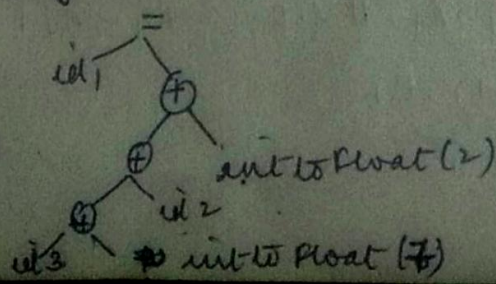 =
id1
+
+
inttofloat(2)
id2
+
id3
inttofloat(7)